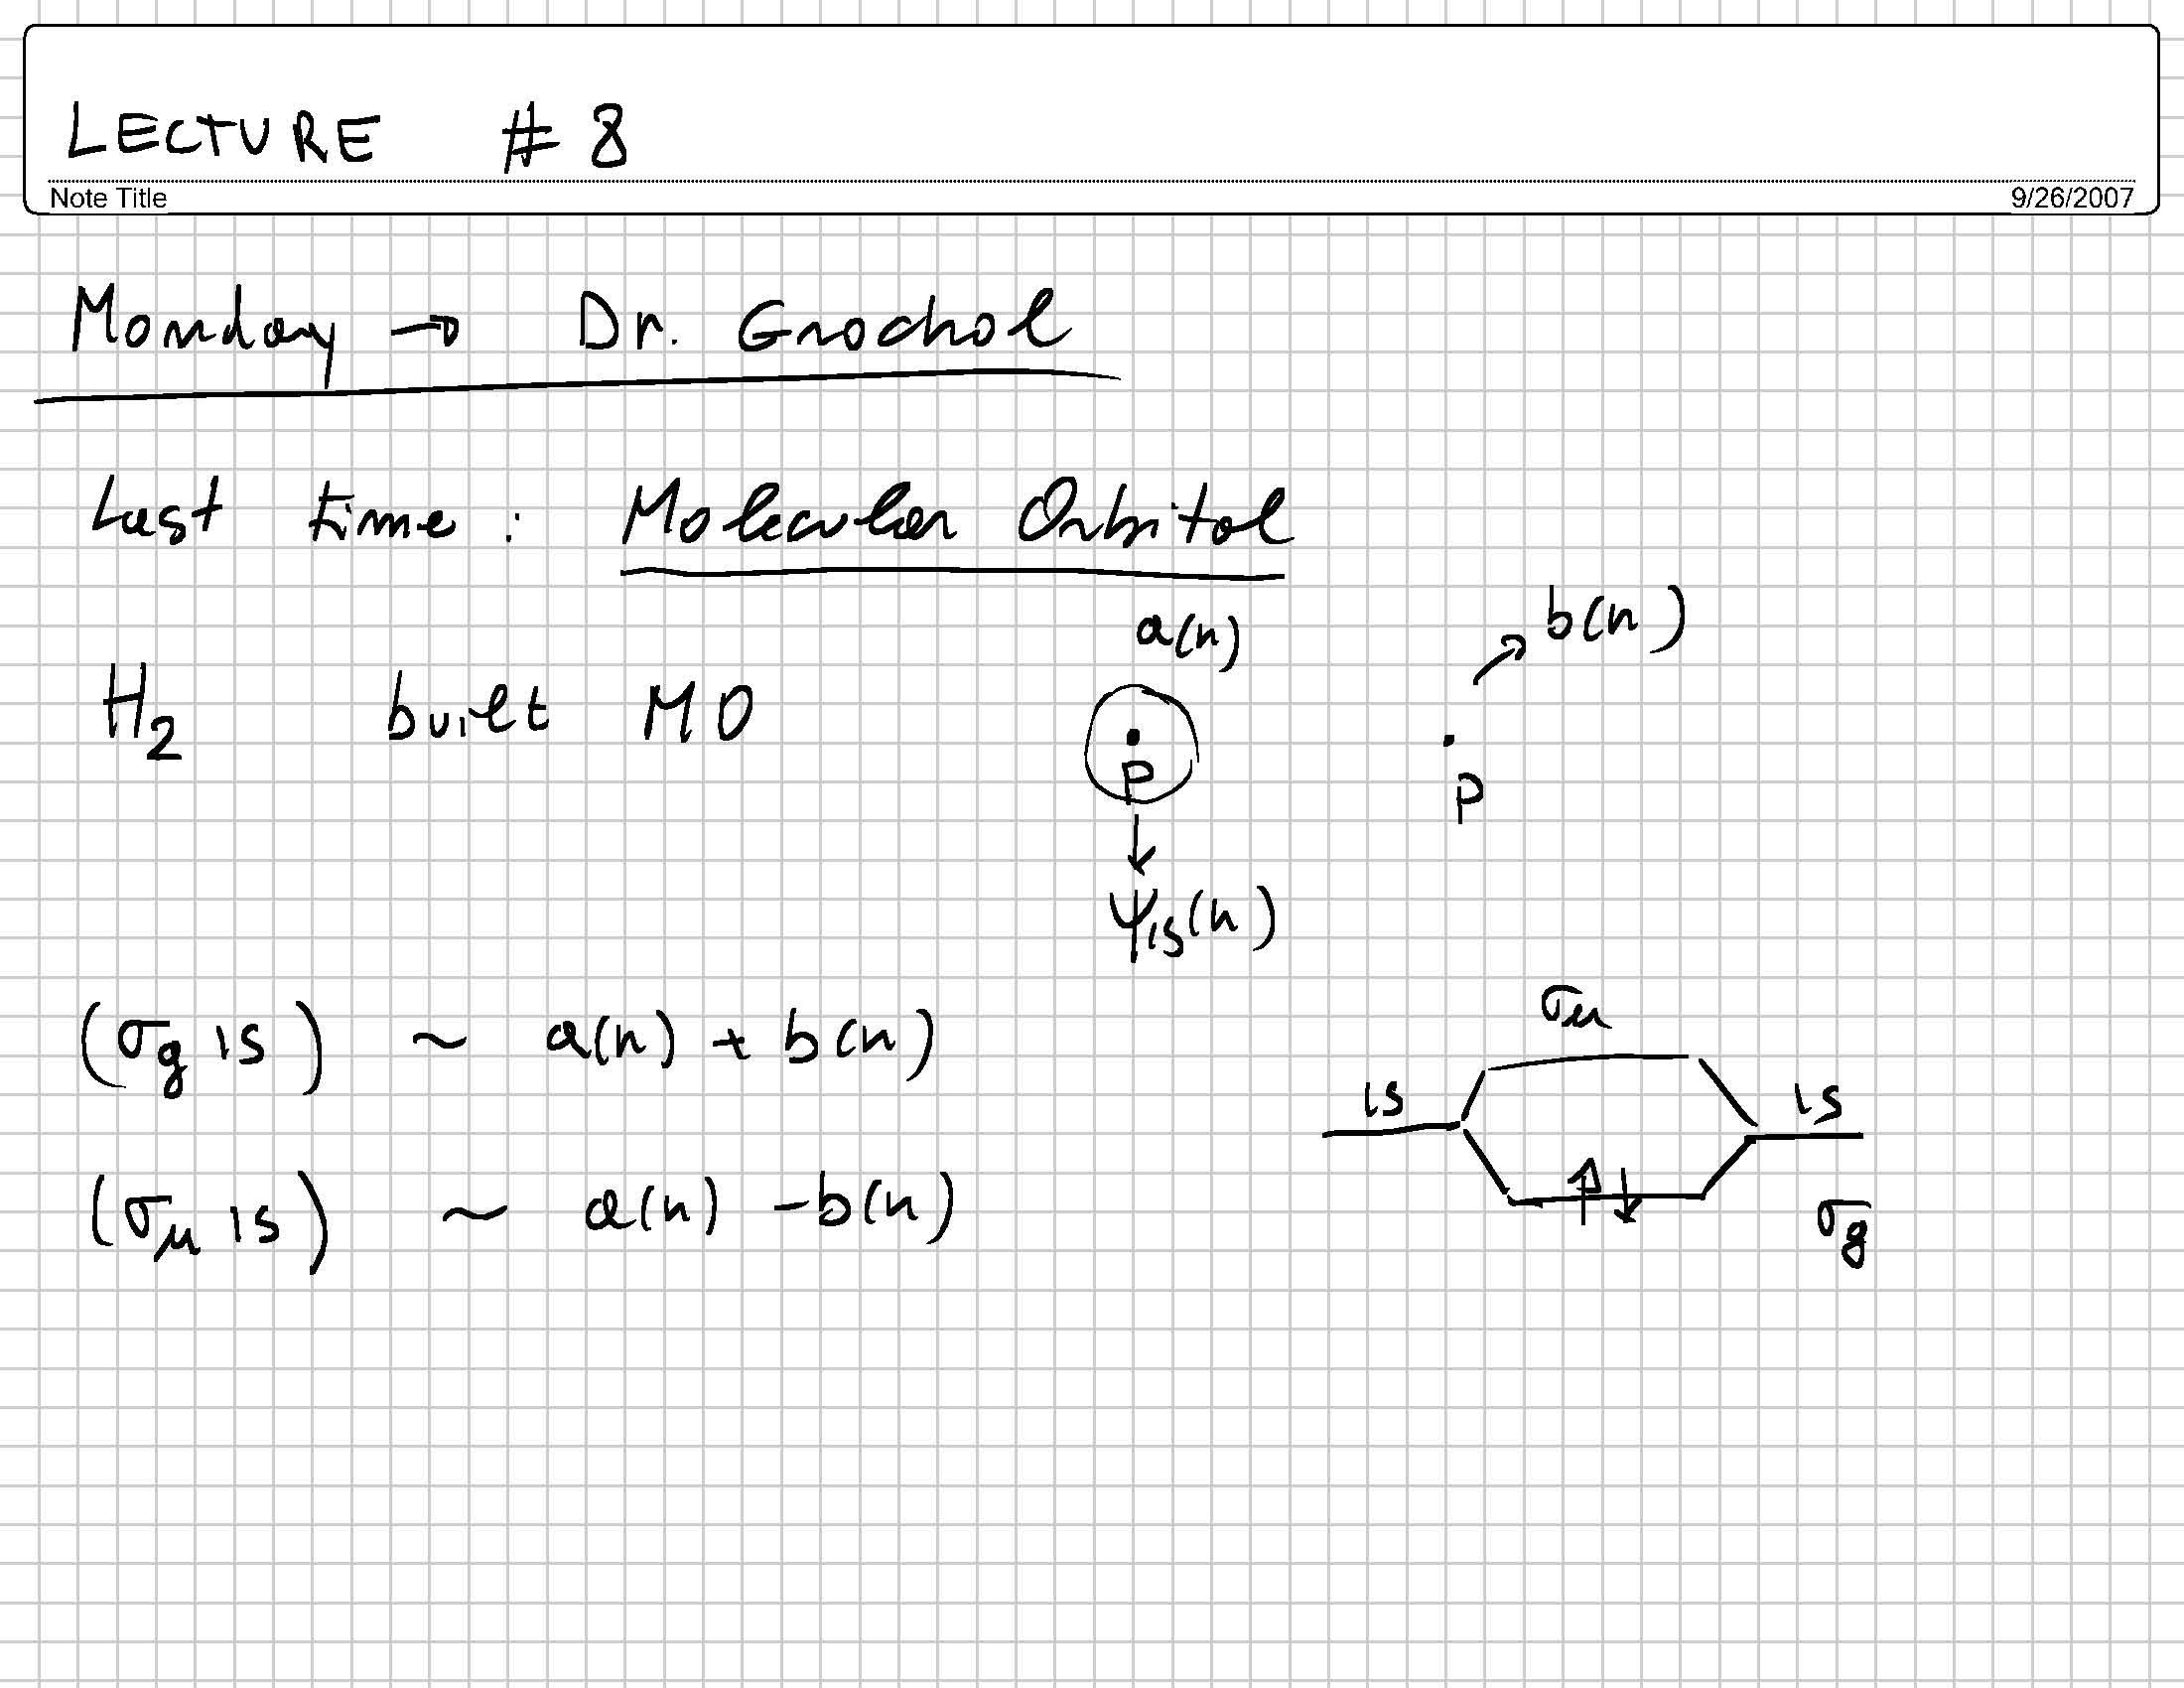 LECTURE # 8
Note Title 9/26/2007
Monday → Dr. Grochol
Last time : Molecular Orbital
a(r) b(r)
H₂ built MO
P P
ψ₁s(r)
(σg 1s) ~ a(r) + b(r)
σu
1s 1s
(σu 1s) ~ a(r) - b(r)
↑↓ σg